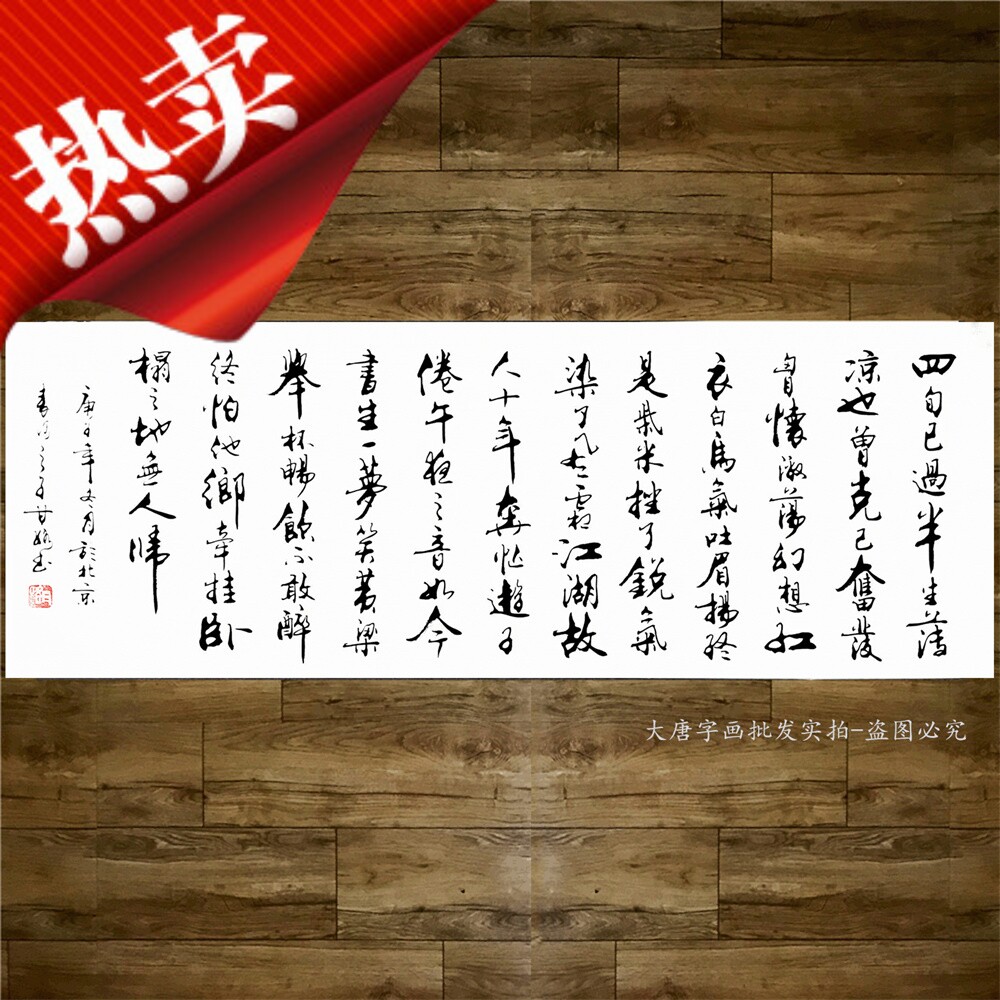 热卖
四旬已過半生薄
凉也曾克己奮發
胷懷激蕩幻想紅
衣白馬氣吐眉揚終
是柴米挫了銳氣
染了風霜江湖故
人十年奔忙遊子
倦午夜之音如今
書生一夢笑黄粱
舉杯暢飲不敢醉
終怕他鄉牽挂卧
榻之地無人歸
庚子年冬月於北京
大唐字画批发实拍-盗图必究